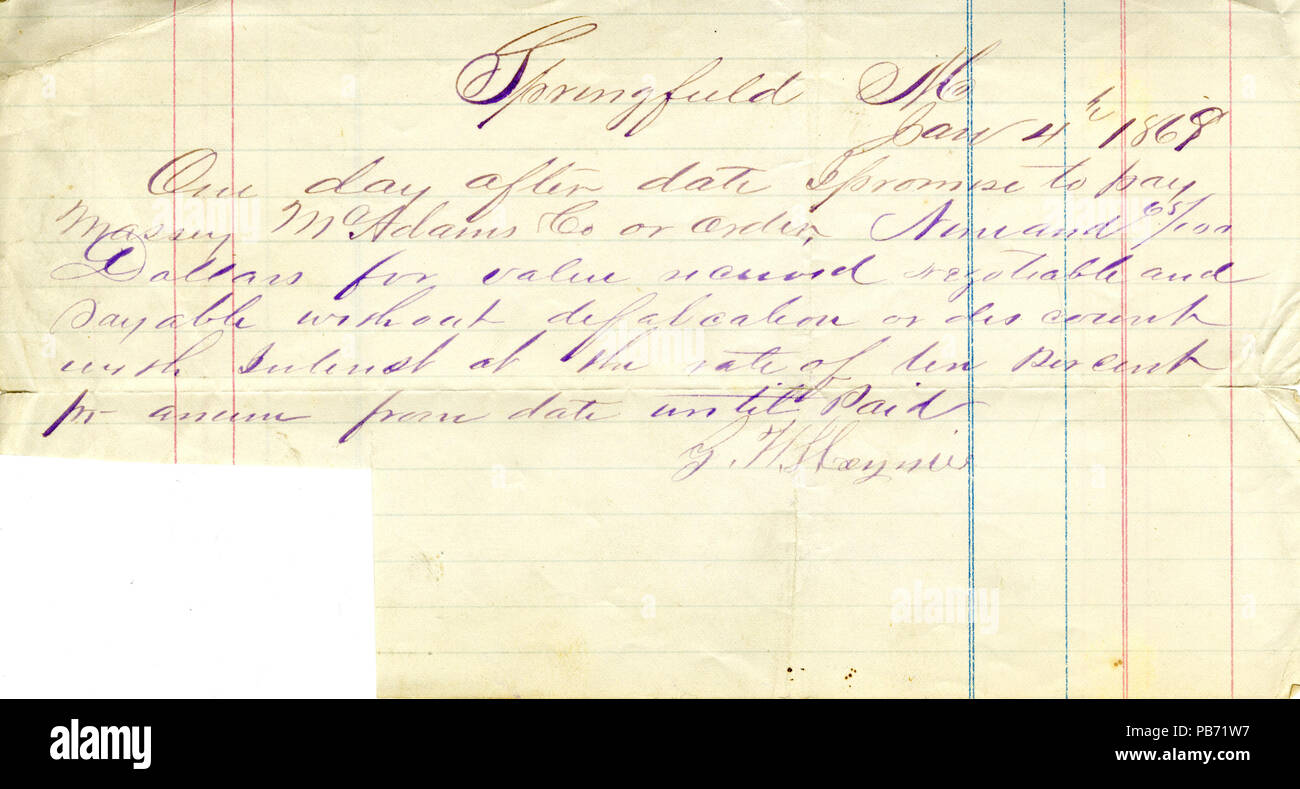 Springfield Mo
Jan 4th 1869
One day after date I promise to pay
Massey McAdams Co or order, Nine and 65/100
Dollars for value received negotiable and
payable without defalcation or discount
with Interest at the rate of ten percent
pr anum from date until Paid
W. Haynie
alamy
alamy
alamy
alamy
alamy
Image ID: PB71W7
www.alamy.com